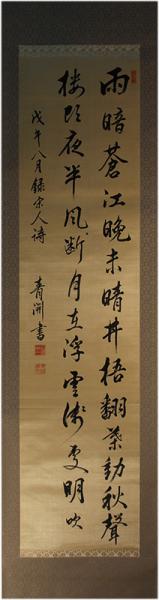 雨暗蒼江晚未晴井梧翻葉動秋聲
樓頭夜半風斷月在浮雲淺處明吹
戊午八月錄宋人詩
青淵書